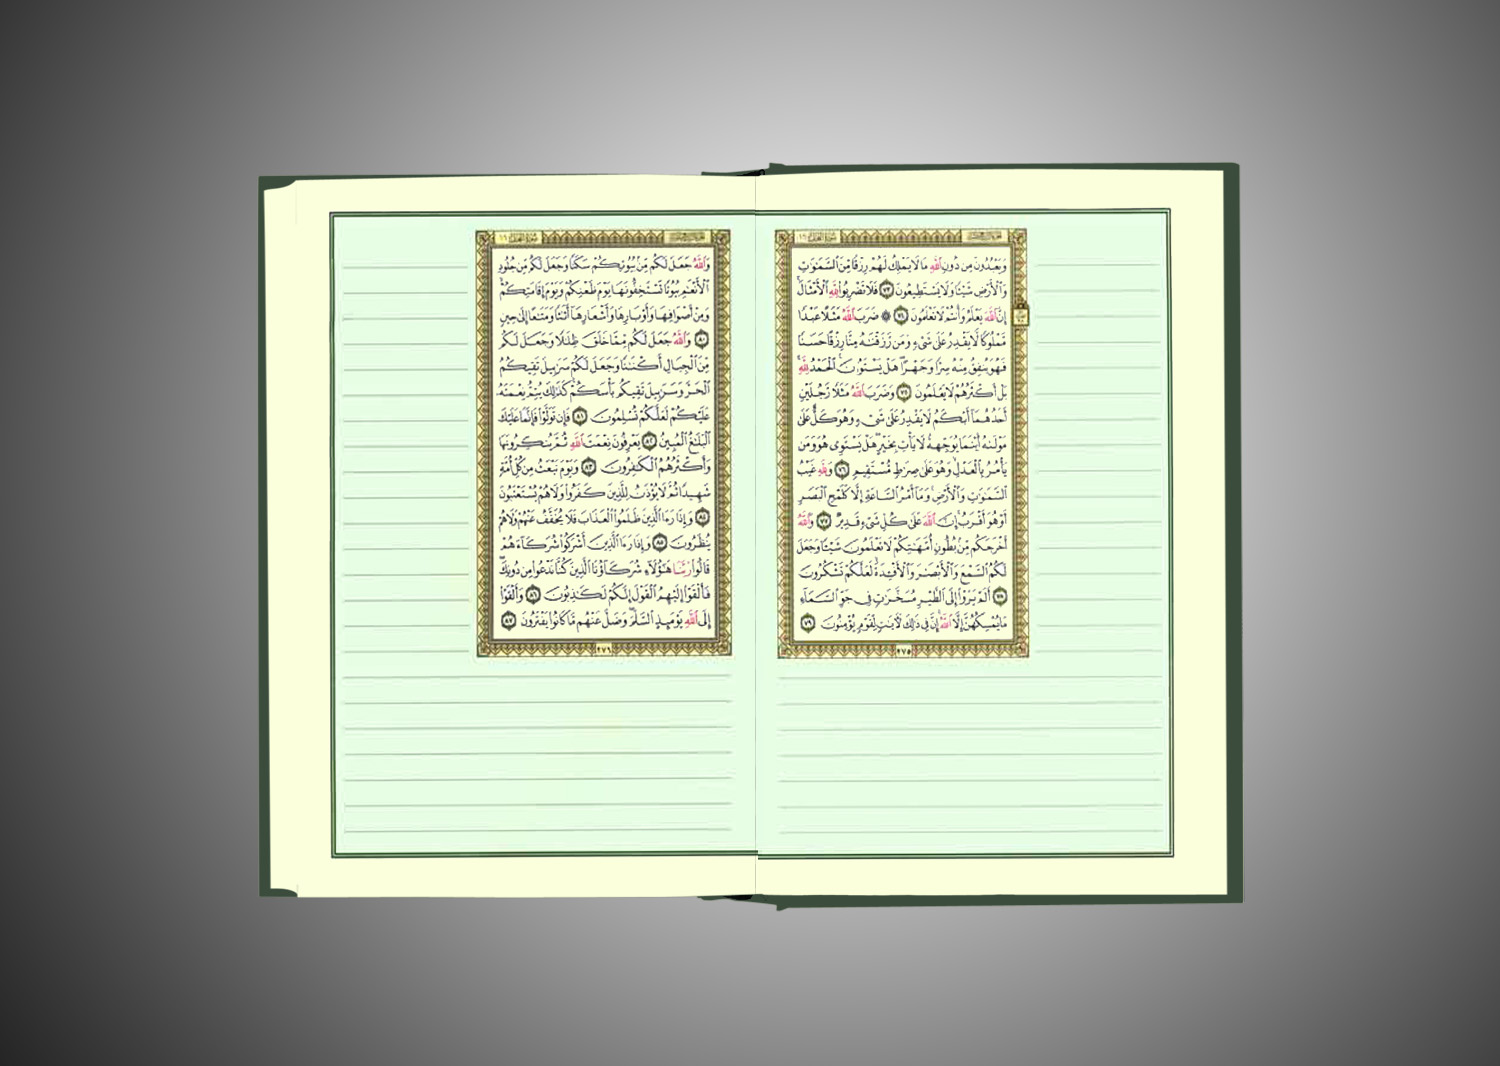 وَيَعْبُدُونَ مِن دُونِ ٱللَّهِ مَا لَا يَمْلِكُ لَهُمْ رِزْقًا مِّنَ ٱلسَّمَٰوَٰتِ
وَٱلْأَرْضِ شَيْـًٔا وَلَا يَسْتَطِيعُونَ ٧٣ فَلَا تَضْرِبُوا۟ لِلَّهِ ٱلْأَمْثَالَ ۚ
إِنَّ ٱللَّهَ يَعْلَمُ وَأَنتُمْ لَا تَعْلَمُونَ ٧٤ ۞ ضَرَبَ ٱللَّهُ مَثَلًا عَبْدًا
مَّمْلُوكًا لَّا يَقْدِرُ عَلَىٰ شَىْءٍ وَمَن رَّزَقْنَٰهُ مِنَّا رِزْقًا حَسَنًا
فَهُوَ يُنفِقُ مِنْهُ سِرًّا وَجَهْرًا ۖ هَلْ يَسْتَوُۥنَ ۚ ٱلْحَمْدُ لِلَّهِ ۚ
بَلْ أَكْثَرُهُمْ لَا يَعْلَمُونَ ٧٥ وَضَرَبَ ٱللَّهُ مَثَلًا رَّجُلَيْنِ
أَحَدُهُمَآ أَبْكَمُ لَا يَقْدِرُ عَلَىٰ شَىْءٍ وَهُوَ كَلٌّ عَلَىٰ
مَوْلَىٰهُ أَيْنَمَا يُوَجِّههُّ لَا يَأْتِ بِخَيْرٍ ۖ هَلْ يَسْتَوِى هُوَ وَمَن
يَأْمُرُ بِٱلْعَدْلِ ۙ وَهُوَ عَلَىٰ صِرَٰطٍ مُّسْتَقِيمٍ ٧٦ وَلِلَّهِ غَيْبُ
ٱلسَّمَٰوَٰتِ وَٱلْأَرْضِ ۚ وَمَآ أَمْرُ ٱلسَّاعَةِ إِلَّا كَلَمْحِ ٱلْبَصَرِ
أَوْ هُوَ أَقْرَبُ ۚ إِنَّ ٱللَّهَ عَلَىٰ كُلِّ شَىْءٍ قَدِيرٌ ٧٧ وَٱللَّهُ
أَخْرَجَكُم مِّنۢ بُطُونِ أُمَّهَٰتِكُمْ لَا تَعْلَمُونَ شَيْـًٔا وَجَعَلَ
لَكُمُ ٱلسَّمْعَ وَٱلْأَبْصَٰرَ وَٱلْأَفْـِٔدَةَ ۙ لَعَلَّكُمْ تَشْكُرُونَ
٧٨ أَلَمْ يَرَوْا۟ إِلَى ٱلطَّيْرِ مُسَخَّرَٰتٍ فِى جَوِّ ٱلسَّمَآءِ
مَا يُمْسِكُهُنَّ إِلَّا ٱللَّهُ ۗ إِنَّ فِى ذَٰلِكَ لَـَٔايَٰتٍ لِّقَوْمٍ يُؤْمِنُونَ ٧٩
٢٧٥
وَٱللَّهُ جَعَلَ لَكُم مِّنۢ بُيُوتِكُمْ سَكَنًا وَجَعَلَ لَكُم مِّن جُلُودِ
ٱلْأَنْعَٰمِ بُيُوتًا تَسْتَخِفُّونَهَا يَوْمَ ظَعْنِكُمْ وَيَوْمَ إِقَامَتِكُمْ ۙ
وَمِنْ أَصْوَافِهَا وَأَوْبَارِهَا وَأَشْعَارِهَآ أَثَٰثًا وَمَتَٰعًا إِلَىٰ حِينٍ
٨٠ وَٱللَّهُ جَعَلَ لَكُم مِّمَّا خَلَقَ ظِلَٰلًا وَجَعَلَ لَكُم
مِّنَ ٱلْجِبَالِ أَكْنَٰنًا وَجَعَلَ لَكُمْ سَرَٰبِيلَ تَقِيكُمُ
ٱلْحَرَّ وَسَرَٰبِيلَ تَقِيكُم بَأْسَكُمْ ۚ كَذَٰلِكَ يُتِمُّ نِعْمَتَهُۥ
عَلَيْكُمْ لَعَلَّكُمْ تُسْلِمُونَ ٨١ فَإِن تَوَلَّوْا۟ فَإِنَّمَا عَلَيْكَ
ٱلْبَلَٰغُ ٱلْمُبِينُ ٨٢ يَعْرِفُونَ نِعْمَتَ ٱللَّهِ ثُمَّ يُنكِرُونَهَا
وَأَكْثَرُهُمُ ٱلْكَٰفِرُونَ ٨٣ وَيَوْمَ نَبْعَثُ مِن كُلِّ أُمَّةٍ
شَهِيدًا ثُمَّ لَا يُؤْذَنُ لِلَّذِينَ كَفَرُوا۟ وَلَا هُمْ يُسْتَعْتَبُونَ
٨٤ وَإِذَا رَءَا ٱلَّذِينَ ظَلَمُوا۟ ٱلْعَذَابَ فَلَا يُخَفَّفُ عَنْهُمْ وَلَا هُمْ
يُنظَرُونَ ٨٥ وَإِذَا رَءَا ٱلَّذِينَ أَشْرَكُوا۟ شُرَكَآءَهُمْ
قَالُوا۟ رَبَّنَا هَٰٓؤُلَآءِ شُرَكَآؤُنَا ٱلَّذِينَ كُنَّا نَدْعُوا۟ مِن دُونِكَ ۖ
فَأَلْقَوْا۟ إِلَيْهِمُ ٱلْقَوْلَ إِنَّكُمْ لَكَٰذِبُونَ ٨٦ وَأَلْقَوْا۟
إِلَى ٱللَّهِ يَوْمَئِذٍ ٱلسَّلَمَ ۖ وَضَلَّ عَنْهُم مَّا كَانُوا۟ يَفْتَرُونَ ٨٧
٢٧٦